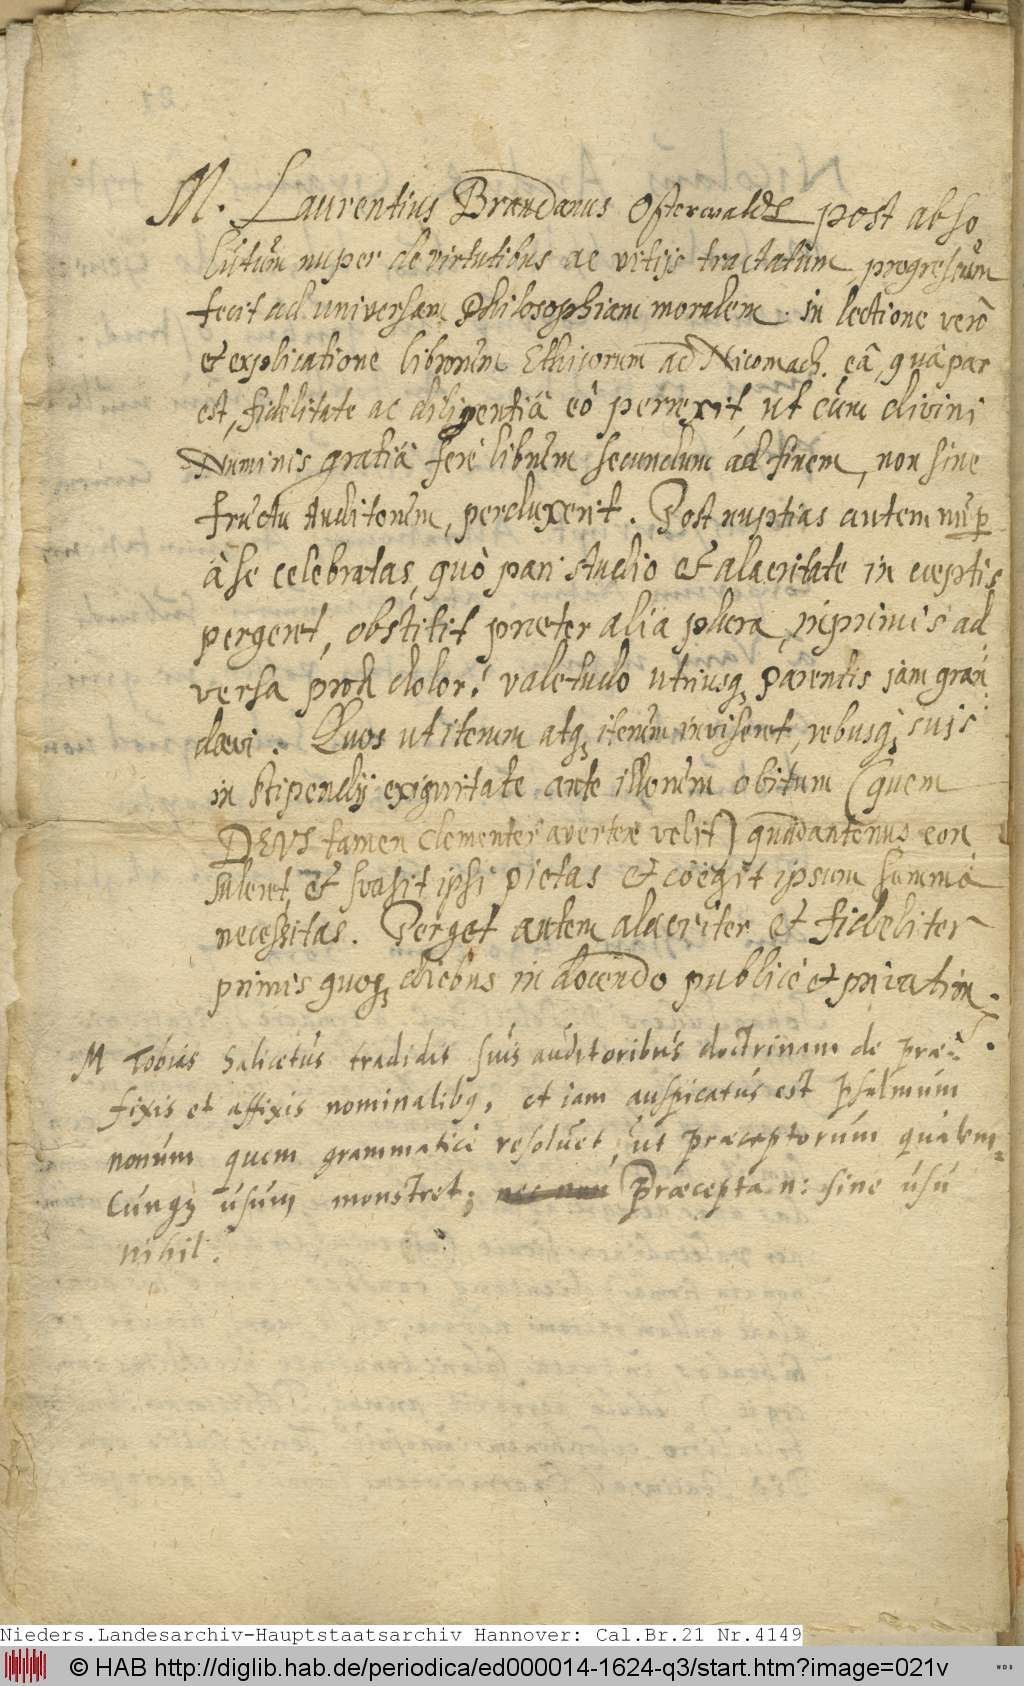 M. Laurentius Brandanus Osterwaldt post abso
lutum nuper de virtutibus ac vitijs tractatum, progressum
fecit ad universam Philosophiam moralem. in lectione verò
et explicatione librorum Ethicorum ad Nicomach. eâ, quâ par
est, fidelitate ac diligentiâ eò perrexit, ut cùm divini
Numinis gratiâ ferè librum secundum ad finem, non sine
fructu Auditorum, perduxerit. Post nuptias autem nup
à se celebratas, quò pari studio et alacritate in cœptis
pergeret, obstitit præter alia plura, inprimis ad
versa proh dolor! valetudo utriusq; parentis jam gran
dævi. Quos ut iterum atq; iterum inviseret, rebusq; suis
in stipendij exiguitate ante illorum obitum (quem
DEUS tamen clementer avertere velit) quadantenus con
suleret, et suasit ipsi pietas et coëgit ipsum summa
necessitas. Perget autem alacriter et fideliter
primis quoq; diebus in docendo publicè et privatim.
M Tobias Salicetus tradidit suis auditoribus doctrinam de præ-
fixis et affixis nominalibq, et iam auspicatus est Psalmum
nonum quem grammaticè resolvet, ut præceptorum qualem-
cunq; usum monstret; nec non Præcepta n: sine usu
nihil.
Nieders.Landesarchiv-Hauptstaatsarchiv Hannover: Cal.Br.21 Nr.4149
© HAB http://diglib.hab.de/periodica/ed000014-1624-q3/start.htm?image=021v